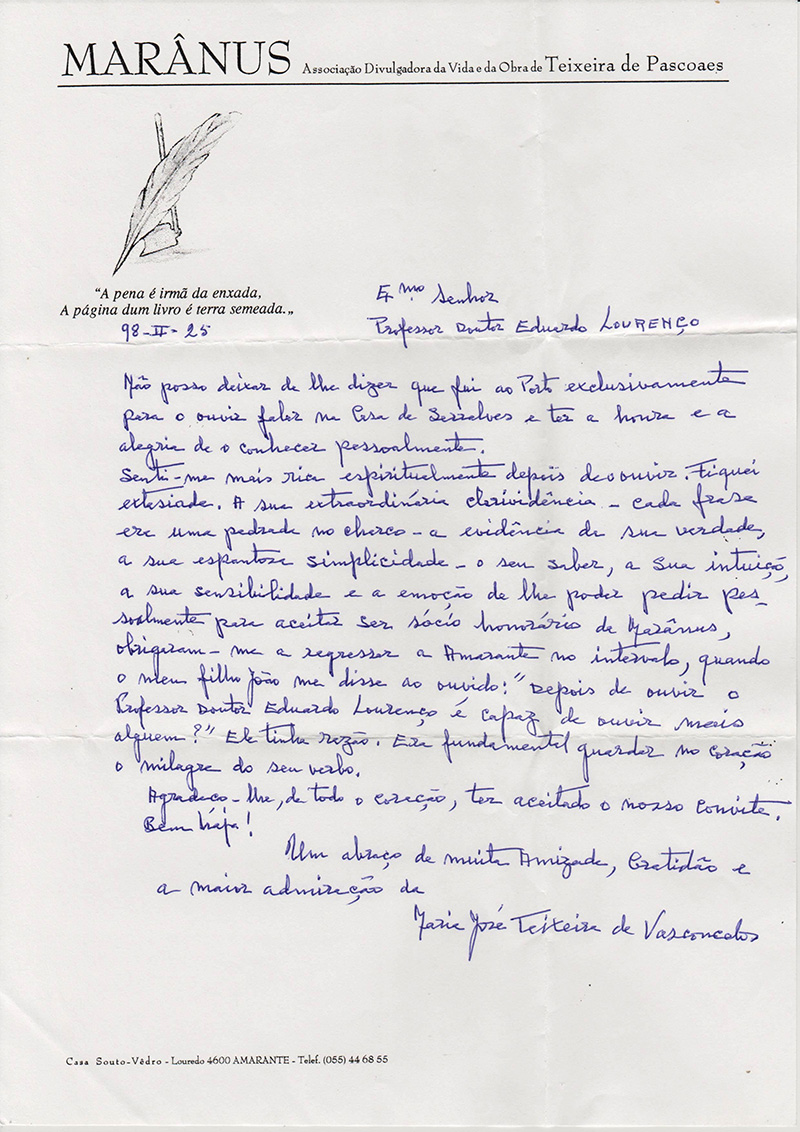 MARÂNUS Associação Divulgadora da Vida e da Obra de Teixeira de Pascoaes
"A pena é irmã da enxada,
A página dum livro é terra semeada.„
98-II-25
Exmo Senhor
Professor Doutor Eduardo LOURENÇO
Não posso deixar de lhe dizer que fui ao Porto exclusivamente
para o ouvir falar na Casa de Serralves e ter a honra e a
alegria de o conhecer pessoalmente.
Senti-me mais rica espiritualmente depois de o ouvir. Fiquei
extasiada. A sua extraordinária clarividência - cada frase
era uma pedrada no charco - a evidência da sua verdade,
a sua espantosa simplicidade - o seu saber, a sua intuição,
a sua sensibilidade e a emoção de lhe poder pedir pes-
soalmente para aceitar ser sócio honorário de Marânus,
obrigaram-me a regressar a Amarante no intervalo, quando
o meu filho João me disse ao ouvido: "Depois de ouvir o
Professor Doutor Eduardo Lourenço é capaz de ouvir mais
alguem?" Ele tinha razão. Era fundamental guardar no coração
o milagre do seu verbo.
Agradeço-lhe, de todo o coração, ter aceitado o nosso convite.
Bem haja!
Um abraço de muita Amizade, Gratidão e
a maior admiração da
Maria José Teixeira de Vasconcelos
Casa Souto-Vêdro - Louredo 4600 AMARANTE - Telef. (055) 44 68 55